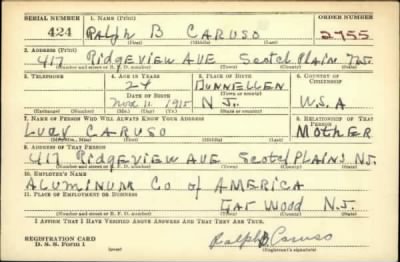 SERIAL NUMBER 1. NAME (Print) ORDER NUMBER
424 RALPH B CARUSO 2755
(First) (Middle) (Last)
2. ADDRESS (Print)
417 RIDGEVIEW AVE SCOTCH PLAIN N.J.
(Number and street or R. F. D. number) (Town) (County) (State)
3. TELEPHONE 4. AGE IN YEARS 5. PLACE OF BIRTH 6. COUNTRY OF CITIZENSHIP
24 DUNNELLEN
DATE OF BIRTH
Nov. 11 1915 N.J. U.S.A
(Exchange) (Number) (Mo.) (Day) (Yr.) (State or country)
7. NAME OF PERSON WHO WILL ALWAYS KNOW YOUR ADDRESS 8. RELATIONSHIP OF THAT PERSON
LUCY CARUSO MOTHER
(Mr., Mrs., Miss) (First) (Middle) (Last)
9. ADDRESS OF THAT PERSON
417 RIDGEVIEW AVE SCOTCH PLAINS N.J.
(Number and street or R. F. D. number) (Town) (County) (State)
10. EMPLOYER'S NAME
ALUMINUM CO of AMERICA
11. PLACE OF EMPLOYMENT OR BUSINESS
GAR WOOD N.J.
(Number and street or R. F. D. number) (Town) (County) (State)
I AFFIRM THAT I HAVE VERIFIED ABOVE ANSWERS AND THAT THEY ARE TRUE.
REGISTRATION CARD
D. S. S. Form 1 (over) Ralph B. Caruso
(Registrant's signature)